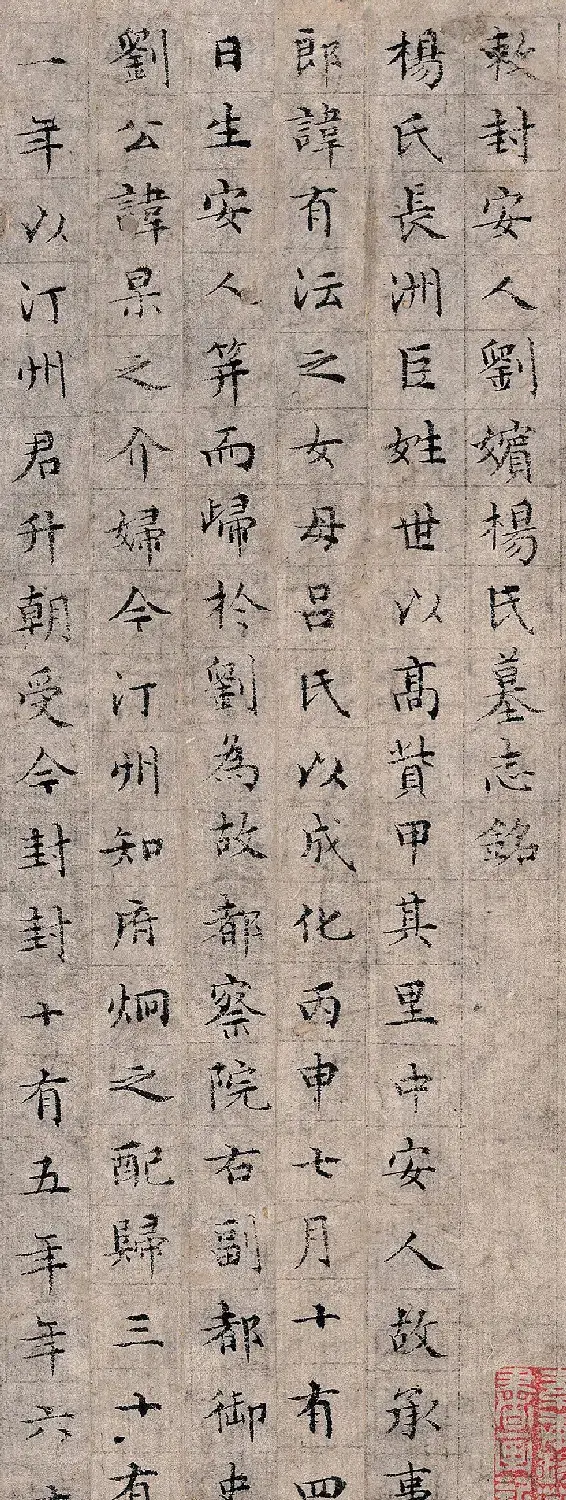 敕封安人劉嬪楊氏墓志銘
楊氏長洲巨姓世以髙貲甲其里中安人故承事
郎諱有沄之女母吕氏以成化丙申七月十有四
日生安人筓而歸於劉為故都察院右副都御史
劉公諱杲之介婦今汀州知府炯之配歸三十有
一年以汀州君升朝受今封封十有五年年六